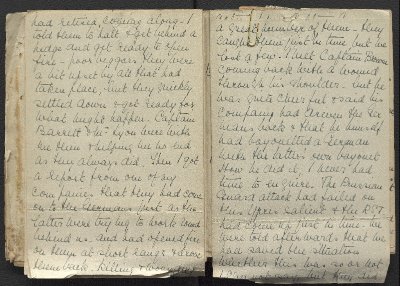 had retired, coming along - I
told them to halt & get behind a
hedge and get ready to open
fire - poor beggars they were
a bit upset by all that had
taken place, but they quickly
settled down & got ready for
what might happen. Captain
Barrett & were with
me then & helping me no end
as they always did. Then I got
a report from one of my
companies that they had come
on to the Germans just as the
latter were trying to work round
behind us and had opened fire
on them at short range & drove
them back, killing & wounding
a great number of them - they
caught them just in time but we
lost a few. I met Captain
coming back with a wound
through his shoulder - but he
was quite cheerful & said his
company had driven the Ger
mans back & that he himself
had bayonetted a German
with the latter's own bayonet
How he did it, I never had
time to enquire. The Prussian
Guard attack had failed on
this Ypres Salient & the
had come up just in time. We
were told afterwards that we
had saved the situation
whether this was so or not
I but they did